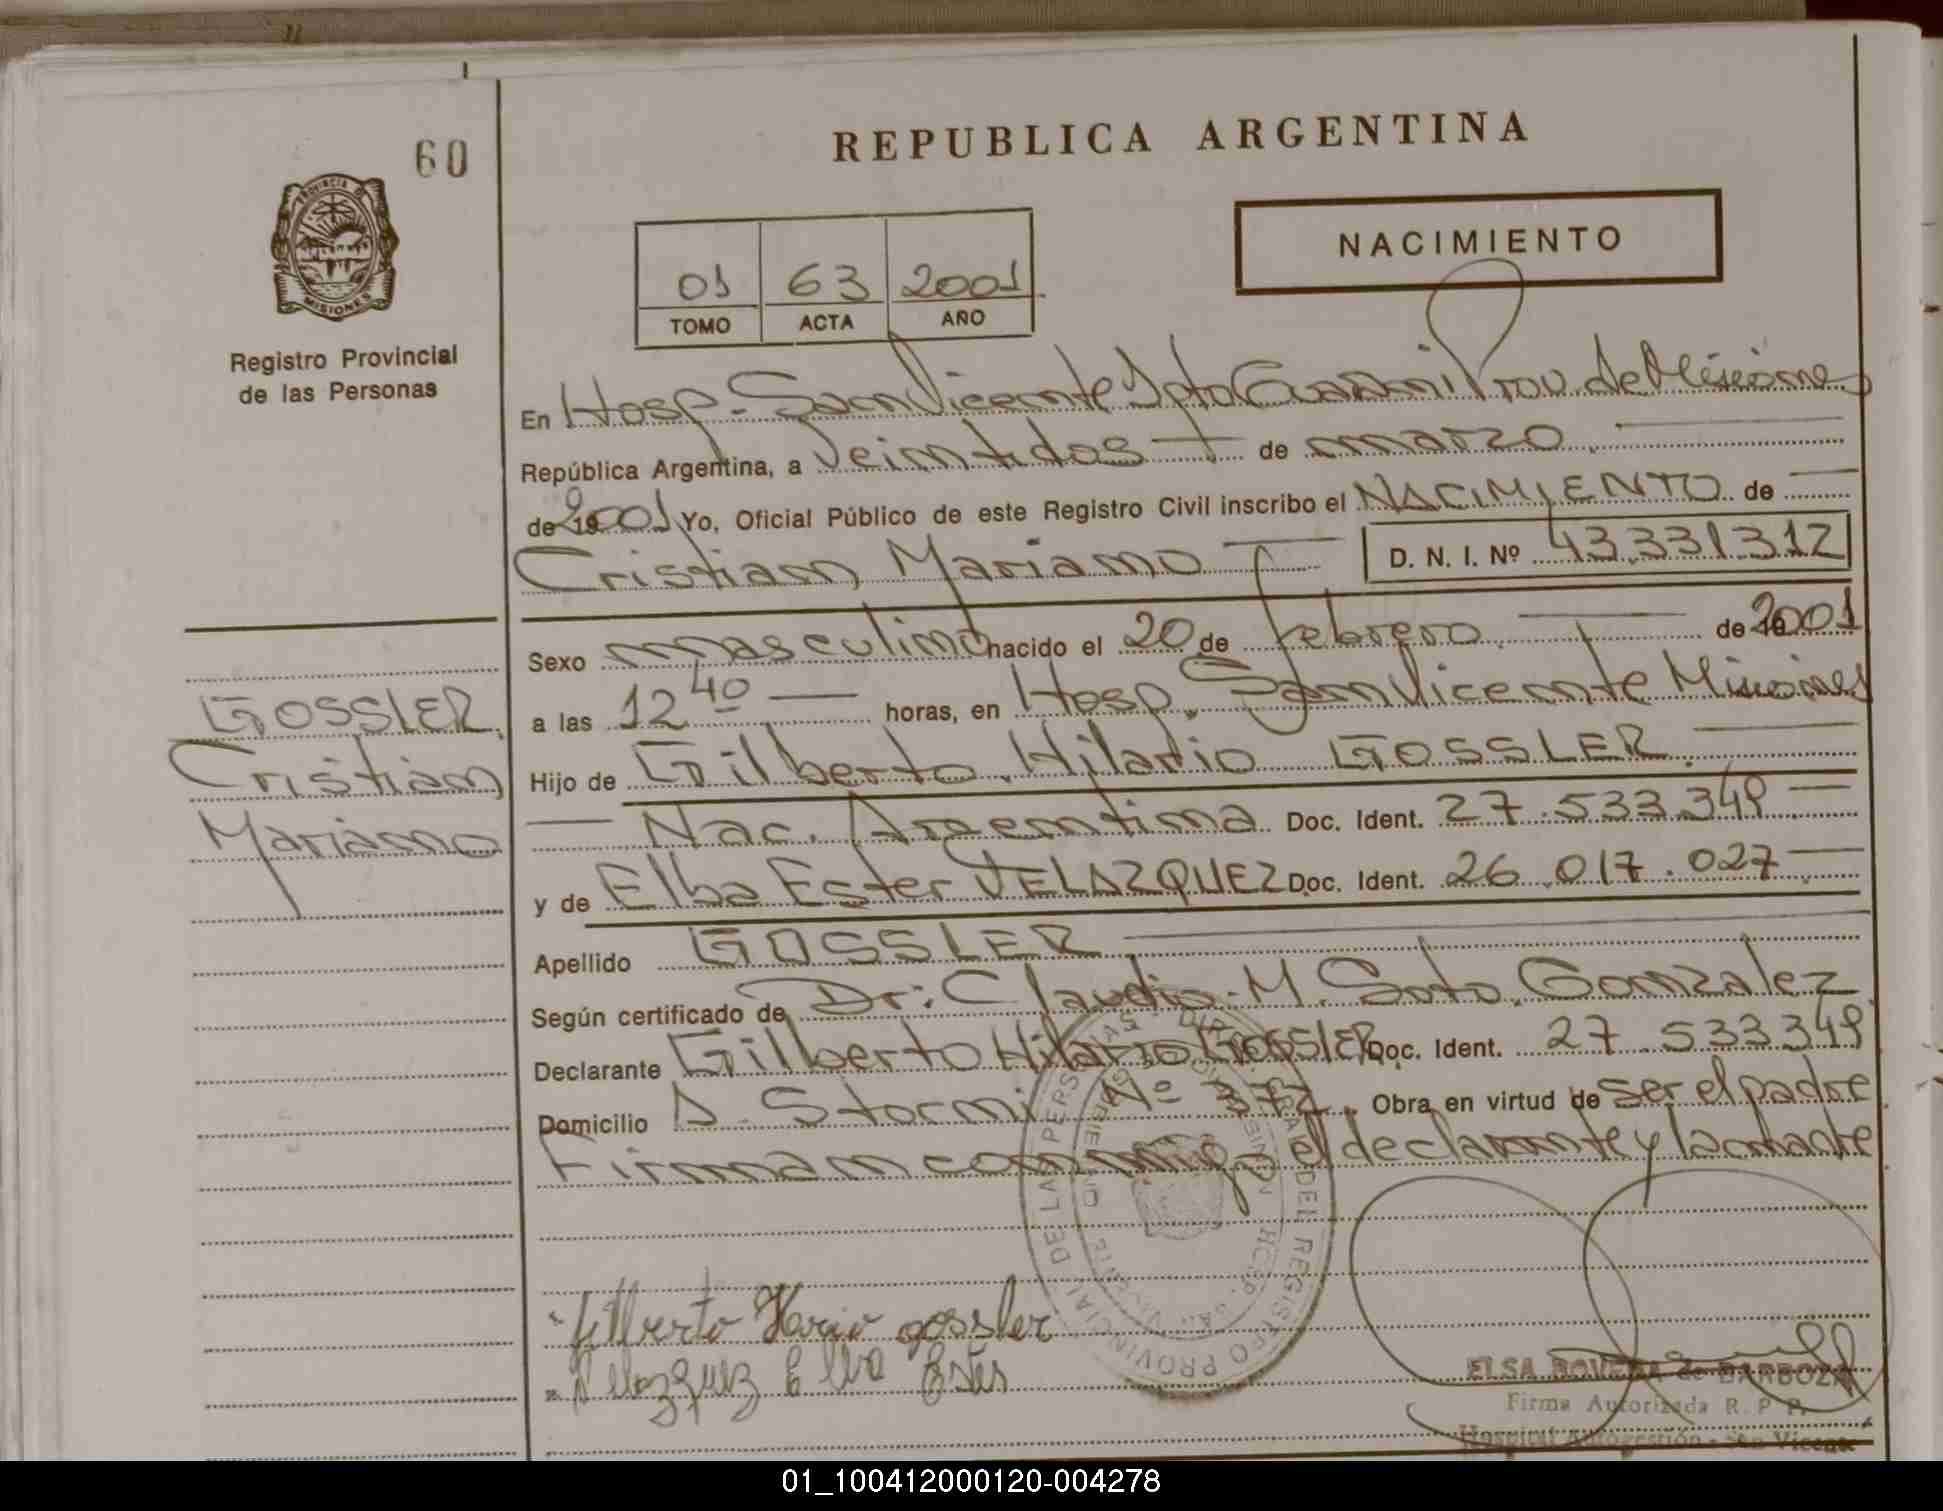 60
REPUBLICA ARGENTINA
PROVINCIA DE MISIONES
Registro Provincial
de las Personas
NACIMIENTO
01 63 2001
TOMO ACTA AÑO
En Hosp. San Vicente Dpto Guarani Prov. de Misiones
República Argentina, a Veintidos de marzo
de 2001 Yo, Oficial Público de este Registro Civil inscribo el NACIMIENTO de
Cristian Mariano D. N. I. Nº 43.331312
GOSSLER
Cristian
Mariano
Sexo masculino nacido el 20 de febrero de 2001
a las 12 40 horas, en Hosp. San Vicente Misiones
Hijo de Gilberto Hilario GOSSLER
Nac. Argentina Doc. Ident. 27.533.349
y de Elba Ester VELAZQUEZ Doc. Ident. 26.017.027
Apellido GOSSLER
Según certificado de Dr: Claudio M. Soto Gonzalez
Declarante Gilberto Hilario GOSSLER Doc. Ident. 27 533349
Domicilio A. Storni Nº 372 Obra en virtud de ser el padre
Firman conmigo el declarante y la madre
REGISTRO PROVINCIAL DE LAS PERSONAS
Gilberto Ilario gossler
Velazquez Elba Ester
ELSA ROVEDA de BARBOZA
Firma Autorizada R. P. P.
Hospital Autogestión - San Vicente
01_100412000120-004278